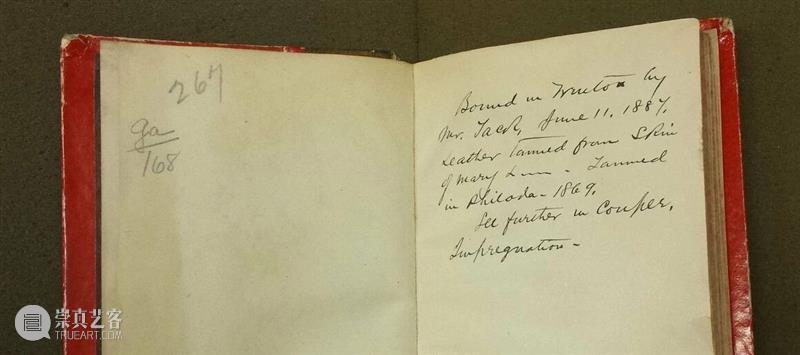 267
ga
168
Bound in Trenton by
Mr. Jacob, June 11, 1887,
Leather tanned from Skin
of Mary L—— - Tanned
in Philada - 1869.
See further in Couper,
Impregnation -
崇真艺客
TRUEART.COM